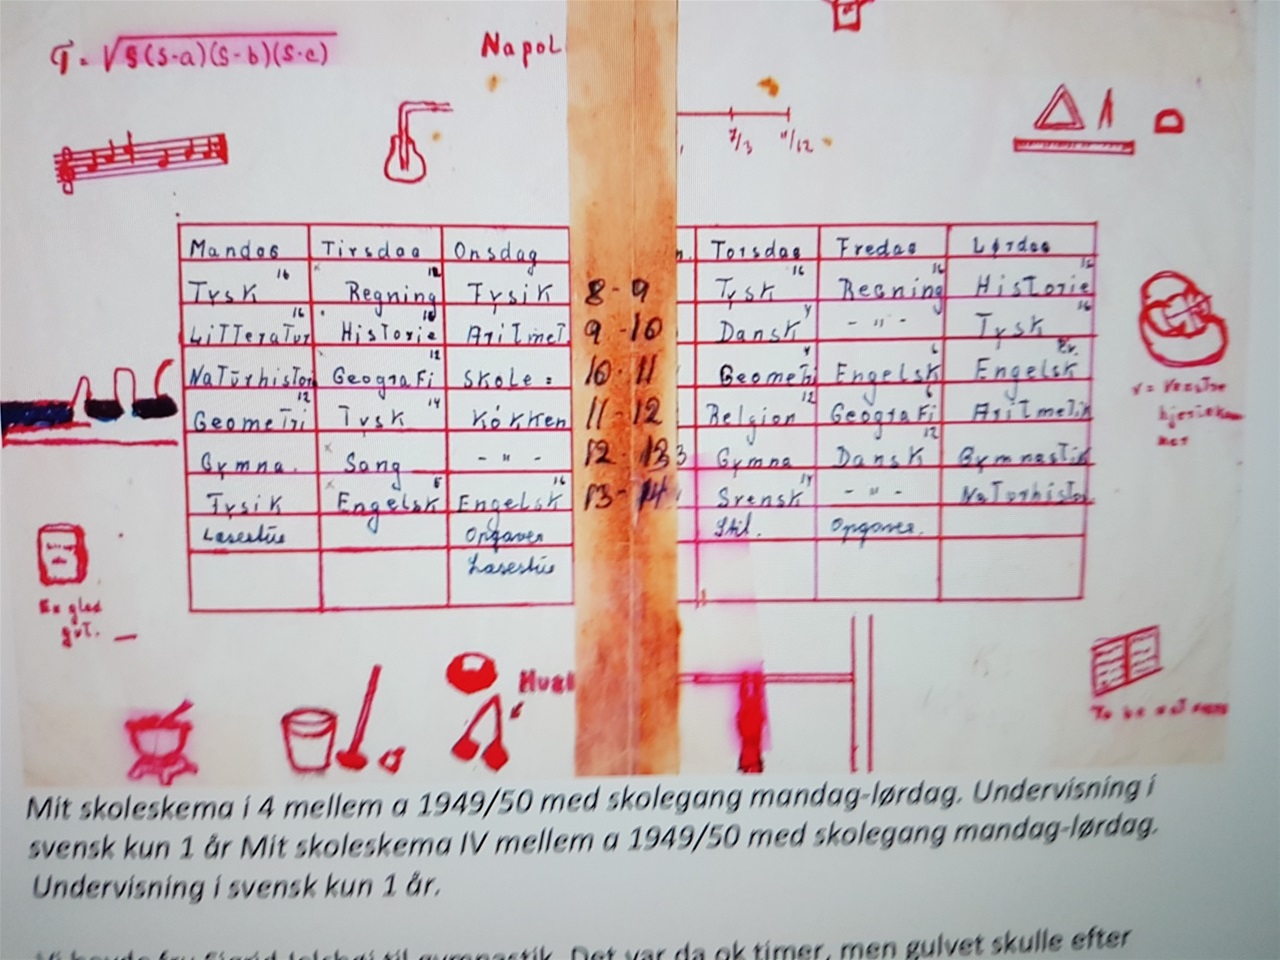 T = √S(S-a)(S-b)(S-c)
Napol
7/3 11/12
Mandag Tirsdag Onsdag Torsdag Fredag Lørdag
Tysk 16 Regning 12 Fysik 8-9 Tysk 16 Regning 16 Historie 16
Litteratur 16 Historie 18 Aritmet. 9-10 Dansk 4 - " - Tysk 16
Naturhistori Geografi 12 Skole= 10-11 Geometri 4 Engelsk 6 Engelsk
Geometri 12 Tysk 14 Køkken 11-12 Religion 12 Geografi 6 Aritmetik
Gymna. Sang - " - 12-13 Gymna Dansk 12 Gymnastik
Fysik Engelsk 6 Engelsk 16 13-14 Svensk 14 - " - Naturhistor.
Læsestue Opgaver Stil. Opgaver.
Læsestue
V = Venstre
hjertekam
mer
En glad
gut.
To be or
Mit skoleskema i 4 mellem a 1949/50 med skolegang mandag-lørdag. Undervisning i
svensk kun 1 år Mit skoleskema IV mellem a 1949/50 med skolegang mandag-lørdag.
Undervisning i svensk kun 1 år.
til gymnastik. Det var da ok timer, men gulvet skulle efter